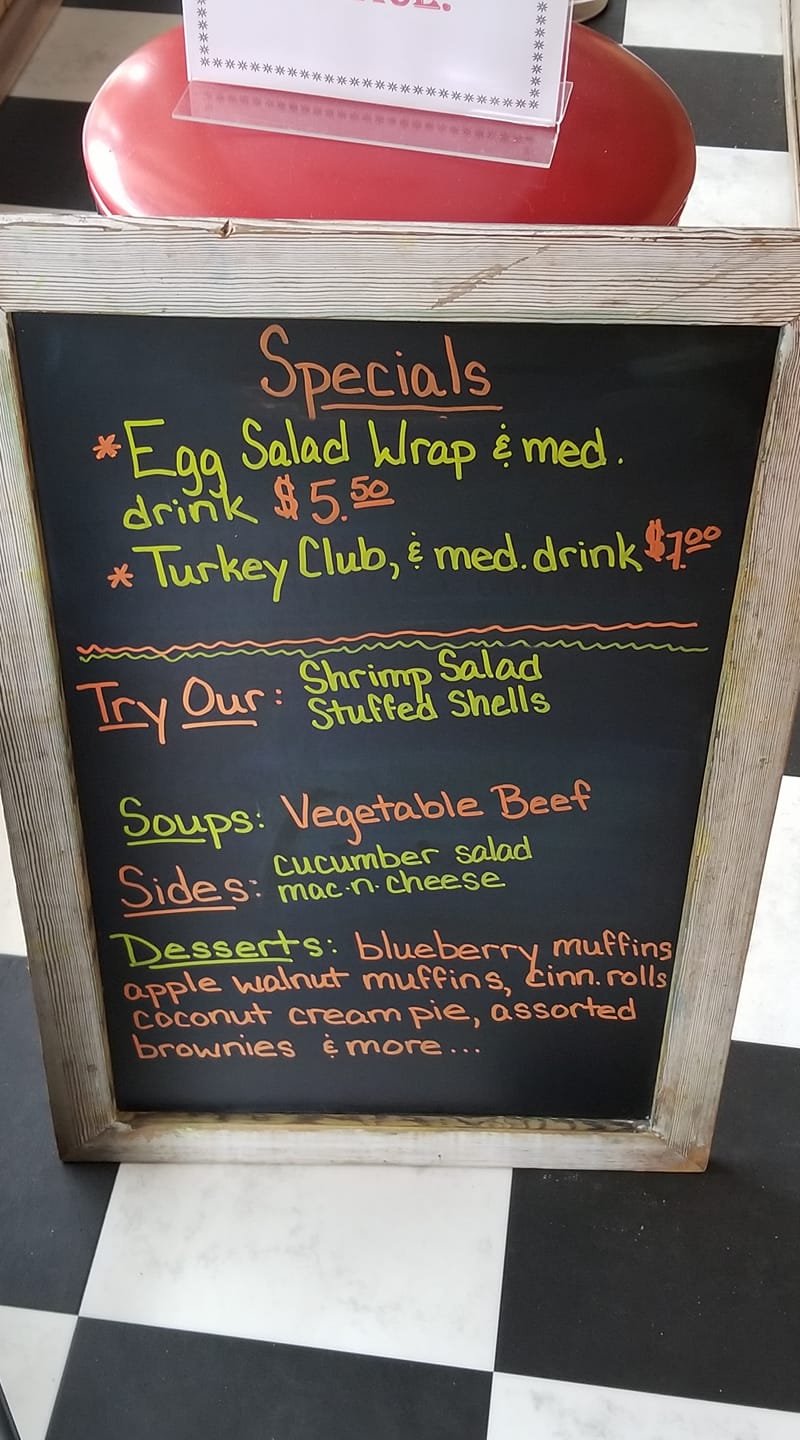 Specials
*Egg Salad Wrap & med.
drink $5.50
*Turkey Club, & med. drink $7.00
Try Our: Shrimp Salad
Stuffed Shells
Soups: Vegetable Beef
Sides: cucumber salad
mac.n.cheese
Desserts: blueberry muffins
apple walnut muffins, cinn. rolls
coconut cream pie, assorted
brownies & more...